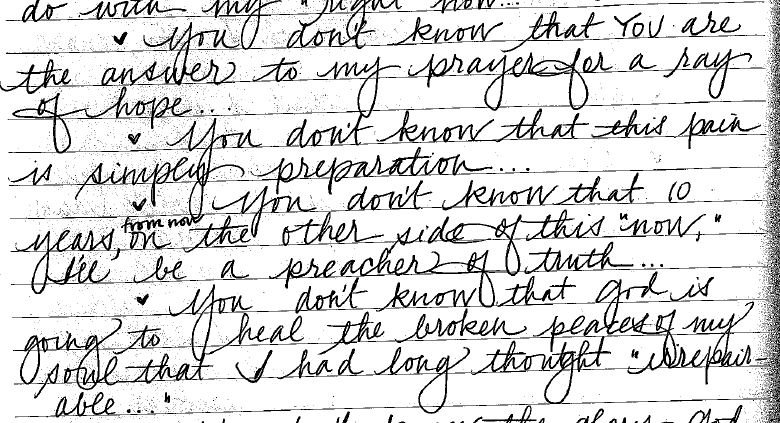 do with my "right now...
♥ You don't know that YOU are
the answer to my prayer for a ray
of hope...
♥ You don't know that this pain
is simply preparation...
♥ You don't know that 10
years, from now on the other side of this "now,"
I'll be a preacher of truth...
♥ You don't know that God is
going to heal the broken peaces of my
soul that I had long thought "irrepair-
able..."
the glory God